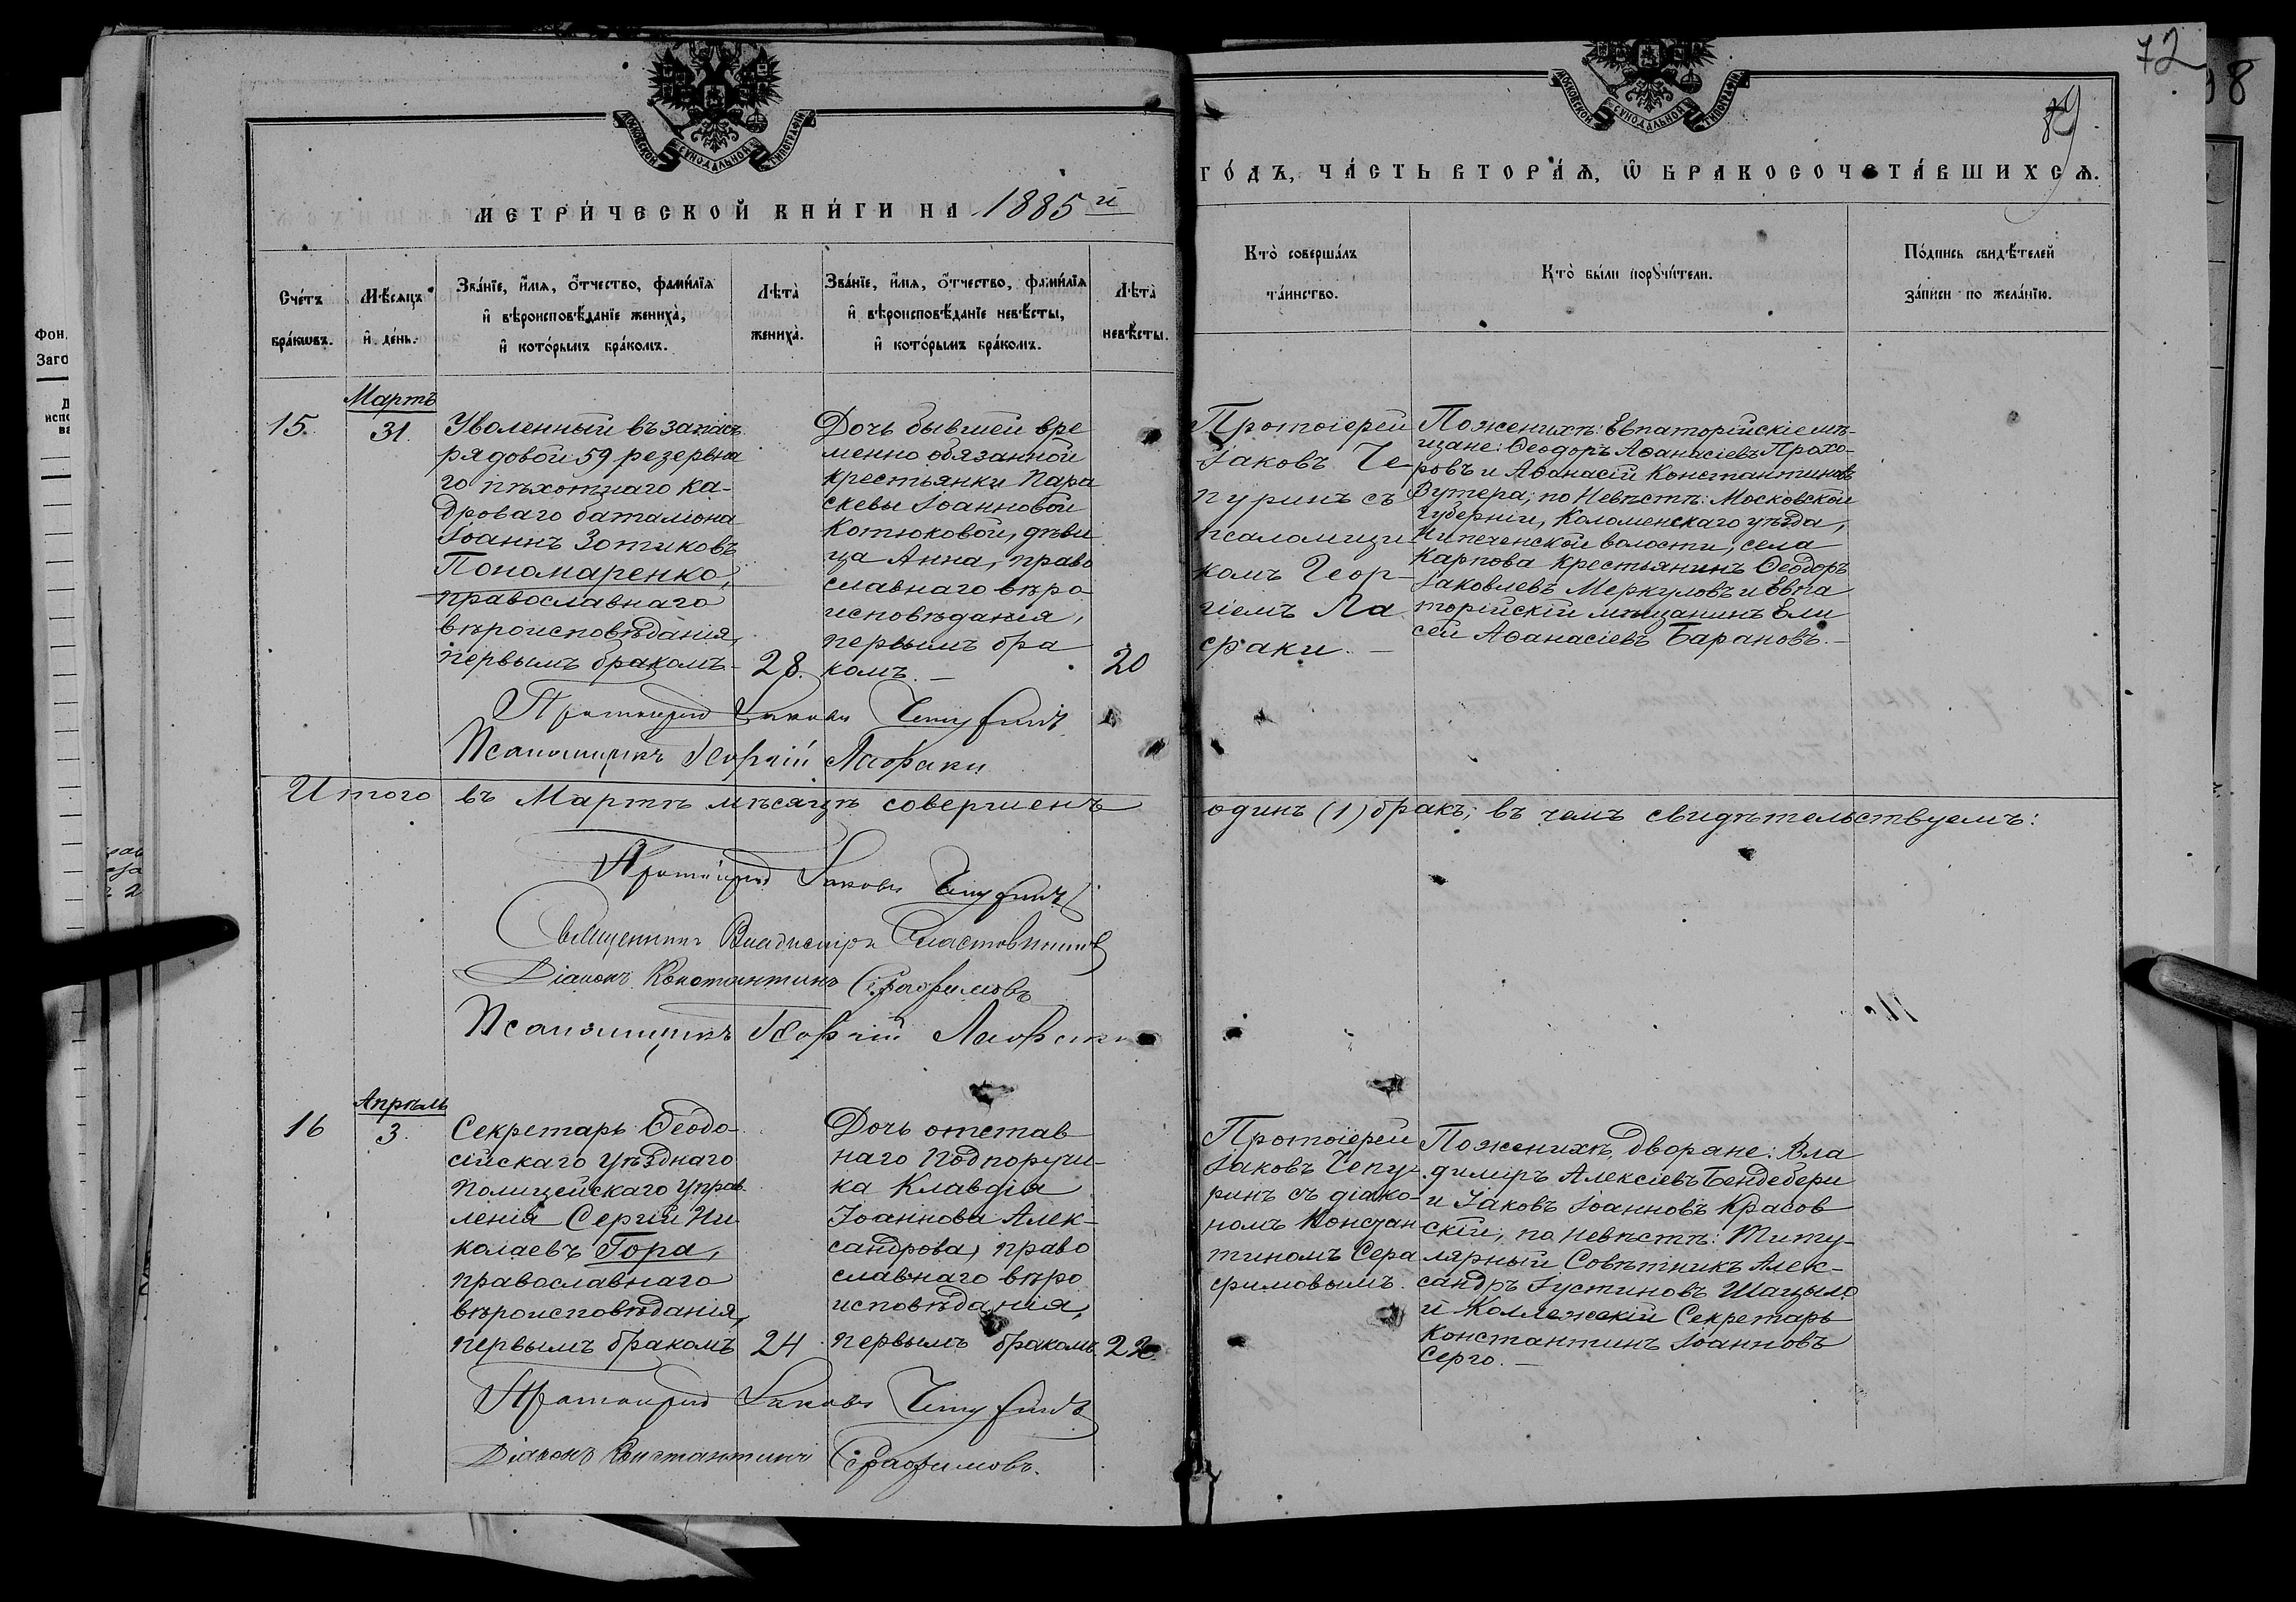 72
98
89
МОСКОВСКОЙ СѴНОДАЛЬНОЙ ТИПОГРАФІИ
МОСКОВСКОЙ СѴНОДАЛЬНОЙ ТИПОГРАФІИ
МЕТРИ́ЧЕСКОЙ КНИ́ГИ НА 1885й
ГО́ДЪ, ЧА́СТЬ ВТОРА́Ѧ, Ѡ҆ БРАКОСОЧЕТА́ВШИХСѦ.
Сче́тъ бра́кѡвъ.
Мѣ́сяцъ и҆ де́нь.
Зва́нїе, и҆́мя, ѻ҆́тчество, фами́лїя и҆ вѣроисповѣ́данїе жениха̀, и҆ кото́рымъ бра́комъ.
Лѣ́та̀ жениха̀.
Зва́нїе, и҆́мя, ѻ҆́тчество, фами́лїя и҆ вѣроисповѣ́данїе невѣ́сты, и҆ кото́рымъ бра́комъ.
Лѣ́та̀ невѣ́сты.
Кто̀ соверша́лъ та́инство.
Кто̀ бы́ли порꙋчи́тели.
По́дпись свидѣ́телей за́писи по жела́нїю.
Мартъ
15.
31.
Уволенный въ запасъ
рядовой 59 резервна
го пѣхотнаго ка-
дроваго баталіона
Іоаннъ Зотиковъ
Пономаренко,
православнаго
вѣроисповѣданія,
первымъ бракомъ-
28.
Дочь бывшей вре
менно обязанной
крестьянки Пара
скевы Іоанновой
Котюковой, дѣви
ца Анна, право
славнаго вѣро-
исповѣданія,
первымъ бра
комъ. —
20
Протоіерей
Іаковъ Че
пуринъ съ
псаломщи
комъ Геор-
гіемъ Ла
факи. —
По женихѣ: Евпаторійскіе мѣ-
щане: Ѳеодоръ Аѳанасіевъ Прохо-
ровъ и Аѳанасій Константиновъ
Вутера; по Невѣстѣ: Московской
Губерніи, Коломенскаго уѣзда,
волости, села
Карпова крестьянинъ Ѳеодоръ
Іаковлевъ Меркуловъ и Евпа
торійскій мѣщанинъ Ели
сей Аѳанасіевъ Барановъ. —
Протоіерей Іаковъ Чепуринъ
Псаломщикъ Георгій Лафаки
Итого въ Мартѣ мѣсяцѣ совершенъ
одинъ (1) бракъ; въ чемъ свидѣтельствуемъ:
Протоіерей Іаковъ Чепуринъ
Священникъ Владиміръ
Діаконъ Константинъ Серафимовъ
Псаломщикъ Георгій Лафаки
Апрѣль
16
3.
Секретарь Ѳеодо-
сійскаго Уѣзднаго
Полицейскаго Управ-
ленія Сергій Ни
колаевъ Гора,
православнаго
вѣроисповѣданія,
первымъ бракомъ
24
Дочь отстав
наго Подпоручи-
ка Клавдія
Іоаннова Алек-
сандрова, право
славнаго вѣро
исповѣданія,
первымъ бракомъ.
Протоіерей
Іаковъ Чепу-
ринъ съ діако-
номъ Констан
тиномъ Сера
фимовымъ.
По женихѣ, дворяне: Вла
димиръ Алексіевъ Бендебери
и Іаковъ Іоанновъ Красов
скій; по невѣстѣ: Титу-
лярный Совѣтникъ Алек-
сандръ Іустиновъ Шацыло
и Коллежскій Секретарь
Константинъ Іоанновъ
Серго. —
Протоіерей Іаковъ Чепуринъ
Діаконъ Константинъ Серафимовъ.